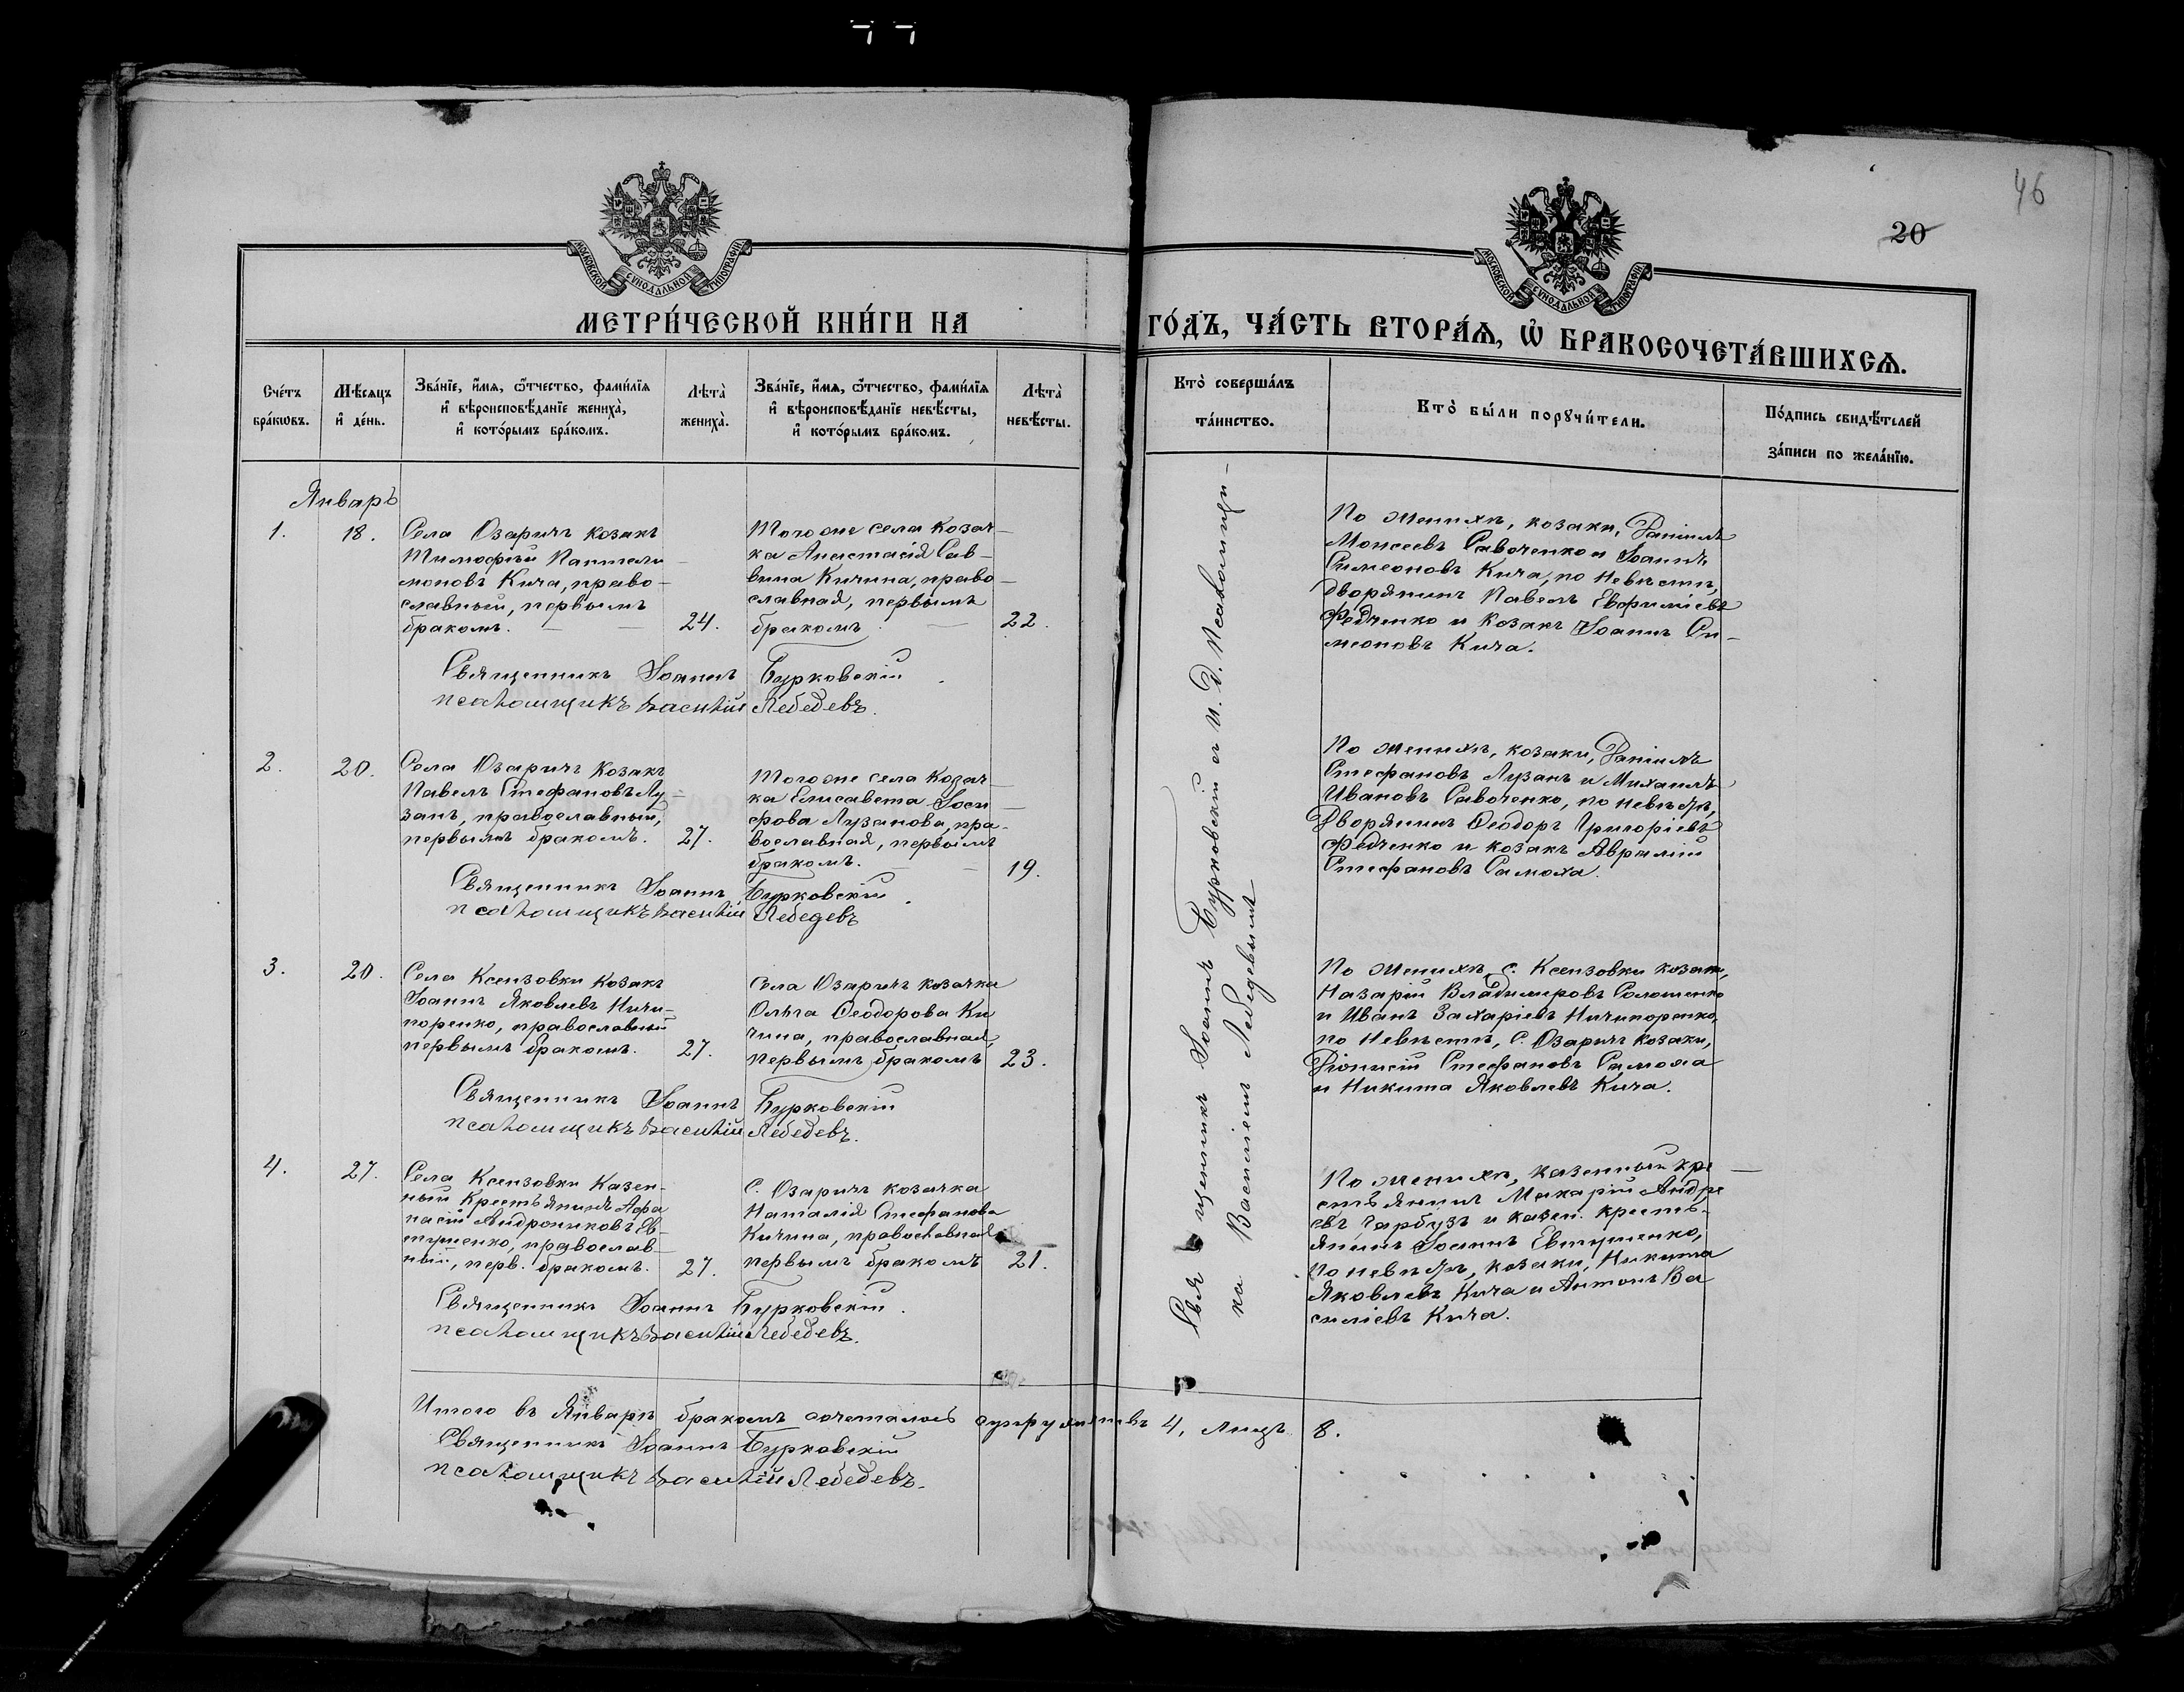 46
20
МОСКОВСКОЙ СѴНОДАЛЬНОЙ ТИПОГРАФІИ
МОСКОВСКОЙ СѴНОДАЛЬНОЙ ТИПОГРАФІИ
МЕТРИ́ЧЕСКОЙ КНИ́ГИ НА ГО́ДЪ, ЧА́СТЬ ВТОРА́Ѧ, Ѽ БРАКОСОЧЕТА́ВШИХСѦ.
Сче́тъ бра́кѡвъ.
Мѣ́сѧцъ и҆ де́нь.
Зва́нїе, и҆́мѧ, ѻ҆́тчество, фами́лїѧ и҆ вѣроисповѣ́данїе жениха̀, и҆ кото́рымъ бра́комъ.
Лѣта̀ жениха̀.
Зва́нїе, и҆́мѧ, ѻ҆́тчество, фами́лїѧ и҆ вѣроисповѣ́данїе невѣ́сты, и҆ кото́рымъ бра́комъ.
Лѣта̀ невѣ́сты.
Кто̀ соверша́лъ та́инство.
Кто̀ бы́ли порꙋчи́тели.
По́дпись свидѣ́телей за́писи по жела́нїю.
Январь
1.
18.
Села Озаричъ козакъ
Тимофѣй Пантели
моновъ Кича, право-
славный, первымъ
бракомъ.
24.
Того же села козач-
ка Анастасія Сав-
вина Кичина, право-
славная, первымъ
бракомъ
22.
По женихѣ, козаки, Даніилъ
Моисеевъ Савоченко и Іоаннъ
Симеоновъ Кича, по невѣстѣ,
дворянинъ Павелъ Евфиміевъ
Федченко и козакъ Іоаннъ Си-
меоновъ Кича.
Священникъ Іоаннъ Бурковскій
псаломщикъ Василій Лебедевъ.
2.
20.
Села Озаричъ козакъ
Павелъ Стефановъ Лу-
занъ, православный,
первымъ бракомъ.
27.
Того же села козач-
ка Елисавета Іоси-
фова Лузанова, пра-
вославная, первымъ
бракомъ.
19.
По женихѣ, козаки, Даніилъ
Стефановъ Лузанъ и Михаилъ
Ивановъ Савоченко, по невѣстѣ,
Дворянинъ Феодоръ Григоріевъ
Федченко и козакъ Аврамій
Стефановъ Симоха.
Священникъ Іоаннъ Бурковскій
псаломщикъ Василій Лебедевъ
3.
20.
Села Ксензовки козакъ
Іоаннъ Яковлевъ Ничи-
поренко, православный
первымъ бракомъ.
27.
Села Озаричъ козачка
Ольга Феодорова Ки
чина, православная,
первымъ бракомъ
23.
По женихѣ, с. Ксензовки козаки,
Назарій Владимировъ Солошенко
и Иванъ Захаріевъ Ничипоренко,
по невѣстѣ, с. Озаричъ козаки,
Діонисій Стефановъ Симоха
и Никита Яковлевъ Кича.
Священникъ Іоаннъ Бурковскій
псаломщикъ Василій Лебедевъ.
4.
27.
Села Ксензовки казен-
ный крестьянинъ Афа
насій Андрониковъ Ев-
тушенко, православ-
ный, перв. бракомъ.
27.
С. Озаричъ козачка
Наталія Стефанова
Кичина, православная
первымъ бракомъ
21.
По женихѣ, казенный кре-
стьянинъ Макарій Андре
евъ Гарбузъ и казен. кресть-
янинъ Іоаннъ Евтушенко,
по невѣстѣ, козаки, Никита
Яковлевъ Кича и Антонъ Ва
силіевъ Кича.
Священникъ Іоаннъ Бурковскій.
псаломщикъ Василій Лебедевъ.
Священникъ Іоаннъ Бурковскій и И. Д. Псаломщи-
ка Василіемъ Лебедевымъ
Итого въ Январѣ бракомъ сочеталось супружествъ 4, лицъ 8.
Священникъ Іоаннъ Бурковскій
псаломщикъ Василій Лебедевъ.